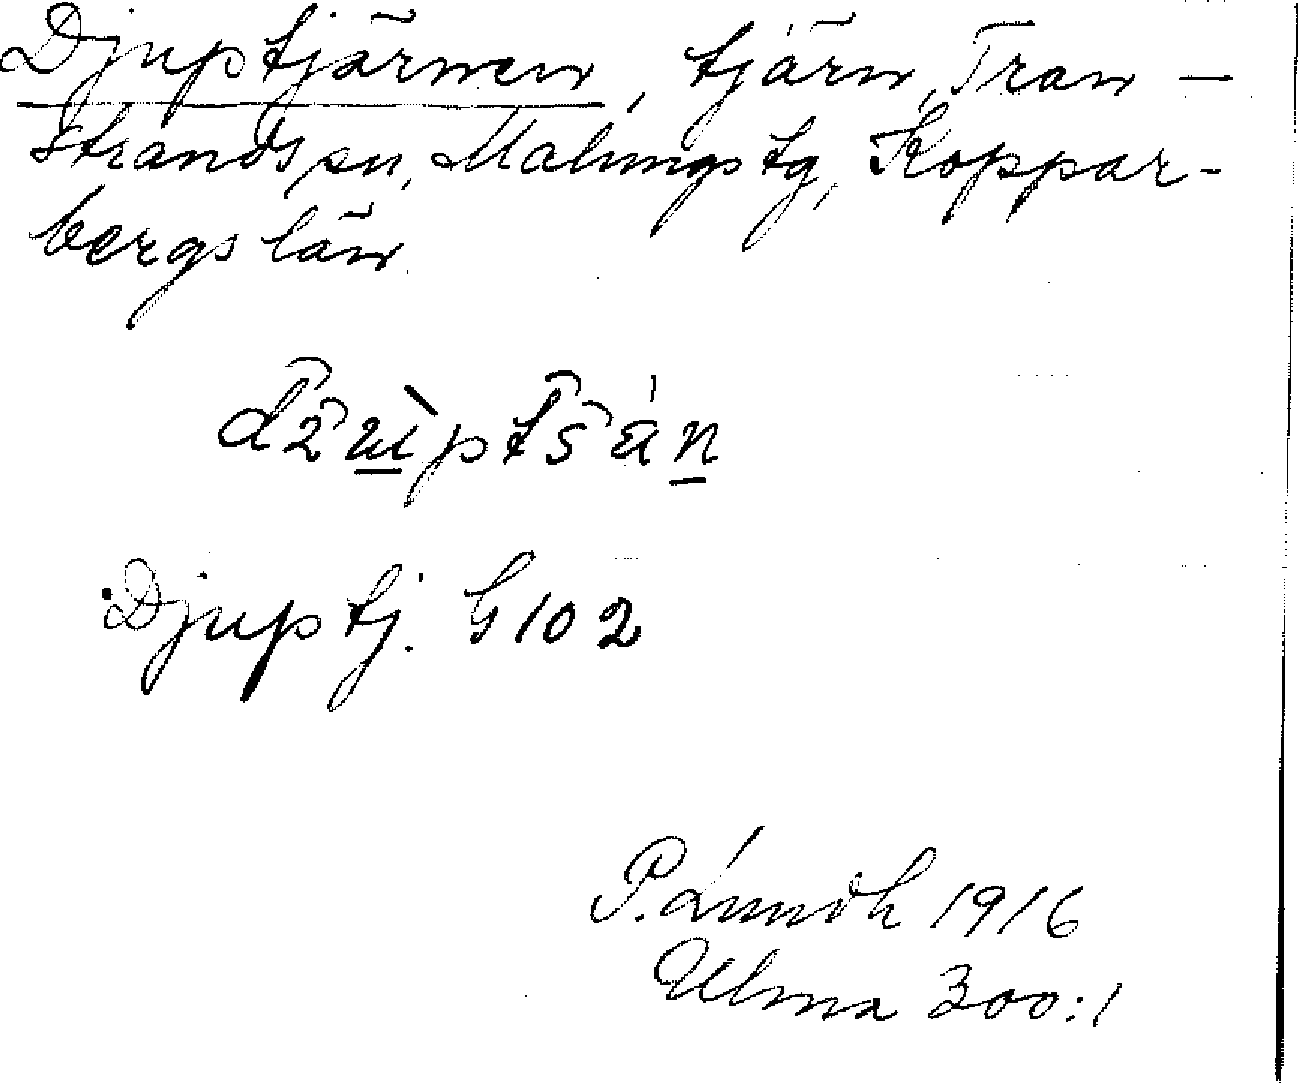 Djuptjärnen, tjärn, Tran-
strands sn, Malungs tg, Koppar-
bergs län
Djuptj. G102
P. Lindh 1916
Ulma 300:1